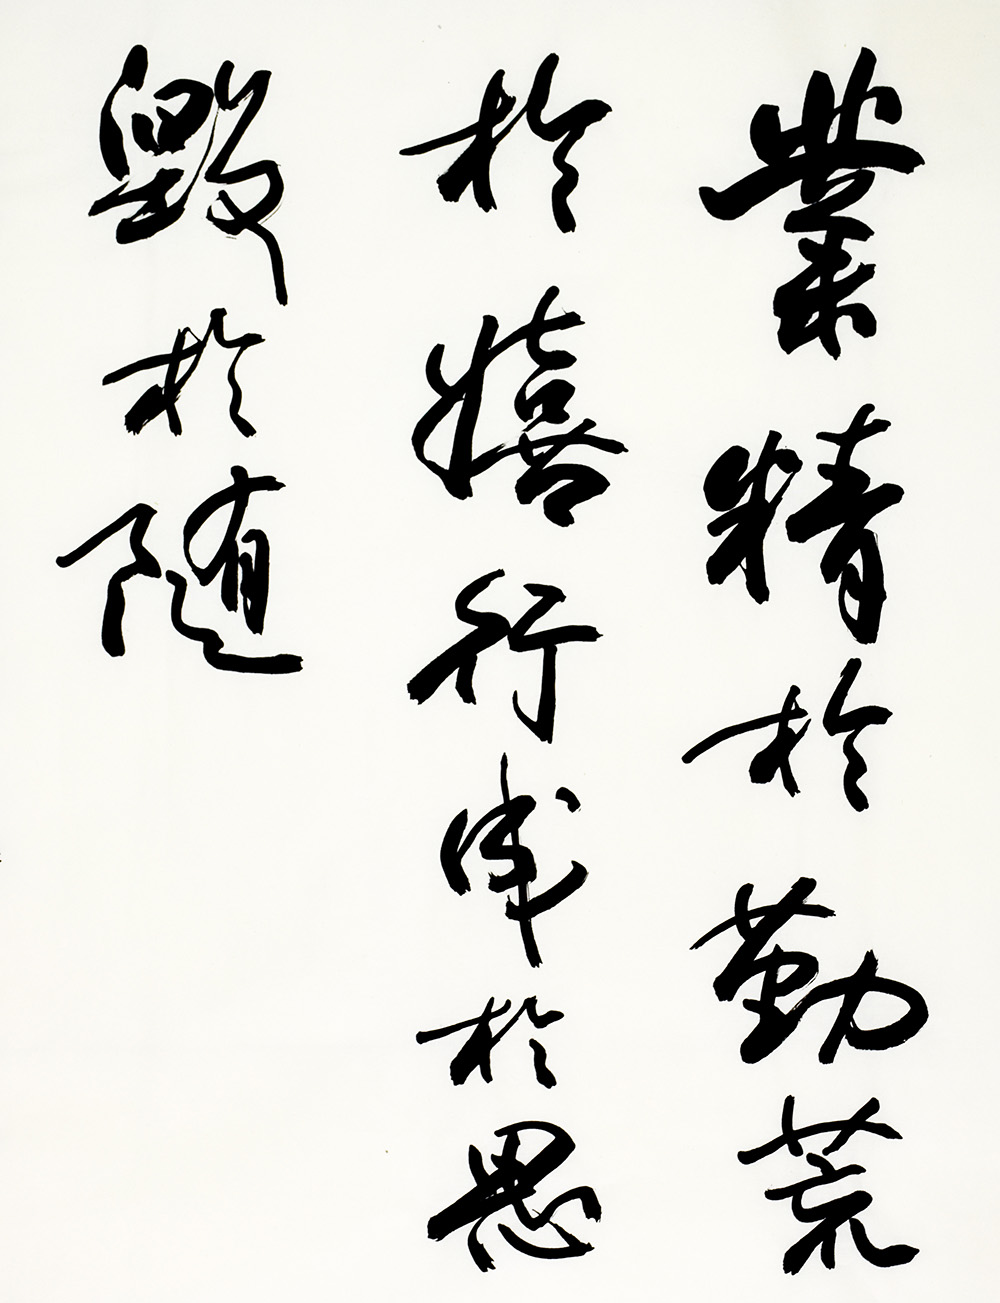 業精於勤荒
於嬉行成於思
毀於随